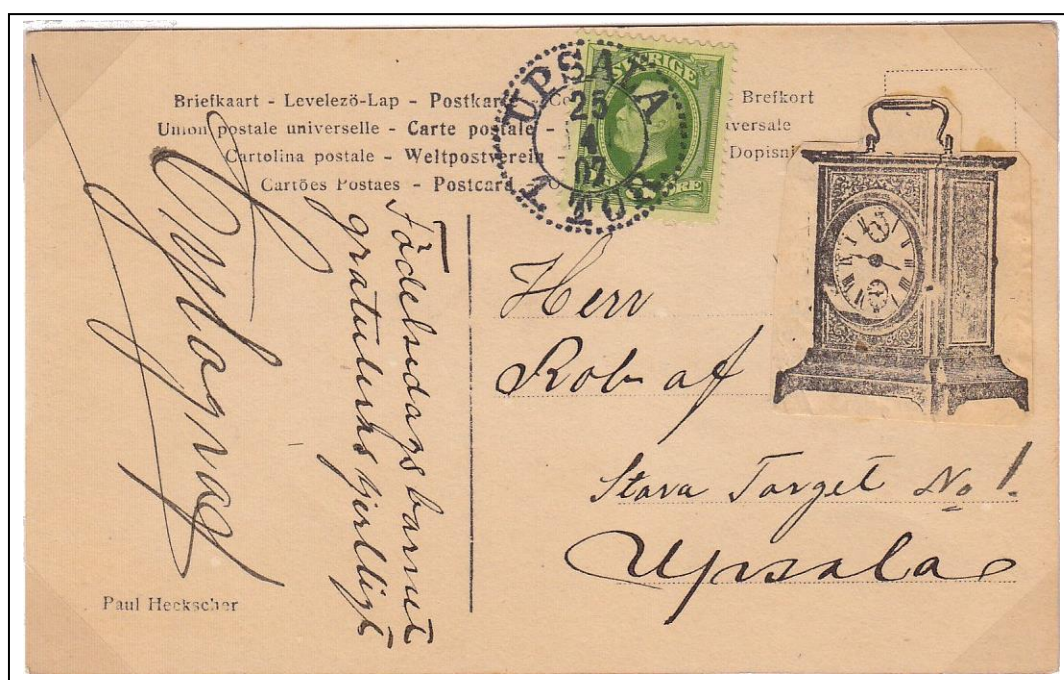 Briefkaart - Levelezö-Lap - Postkar
Breikort
Union postale universelle - Carte postale -
versale
Cartolina postale - Weltpostverein
Dopisni
Cartões Postaes - Postcard
UPSALA
25
4
07
1 TUR
SVERIGE
ÖRE
Födelsedagsbarnet
gratuleras hjertligt
Herr
Rob af
Stora Torget No 1.
Upsala
Paul Heckscher